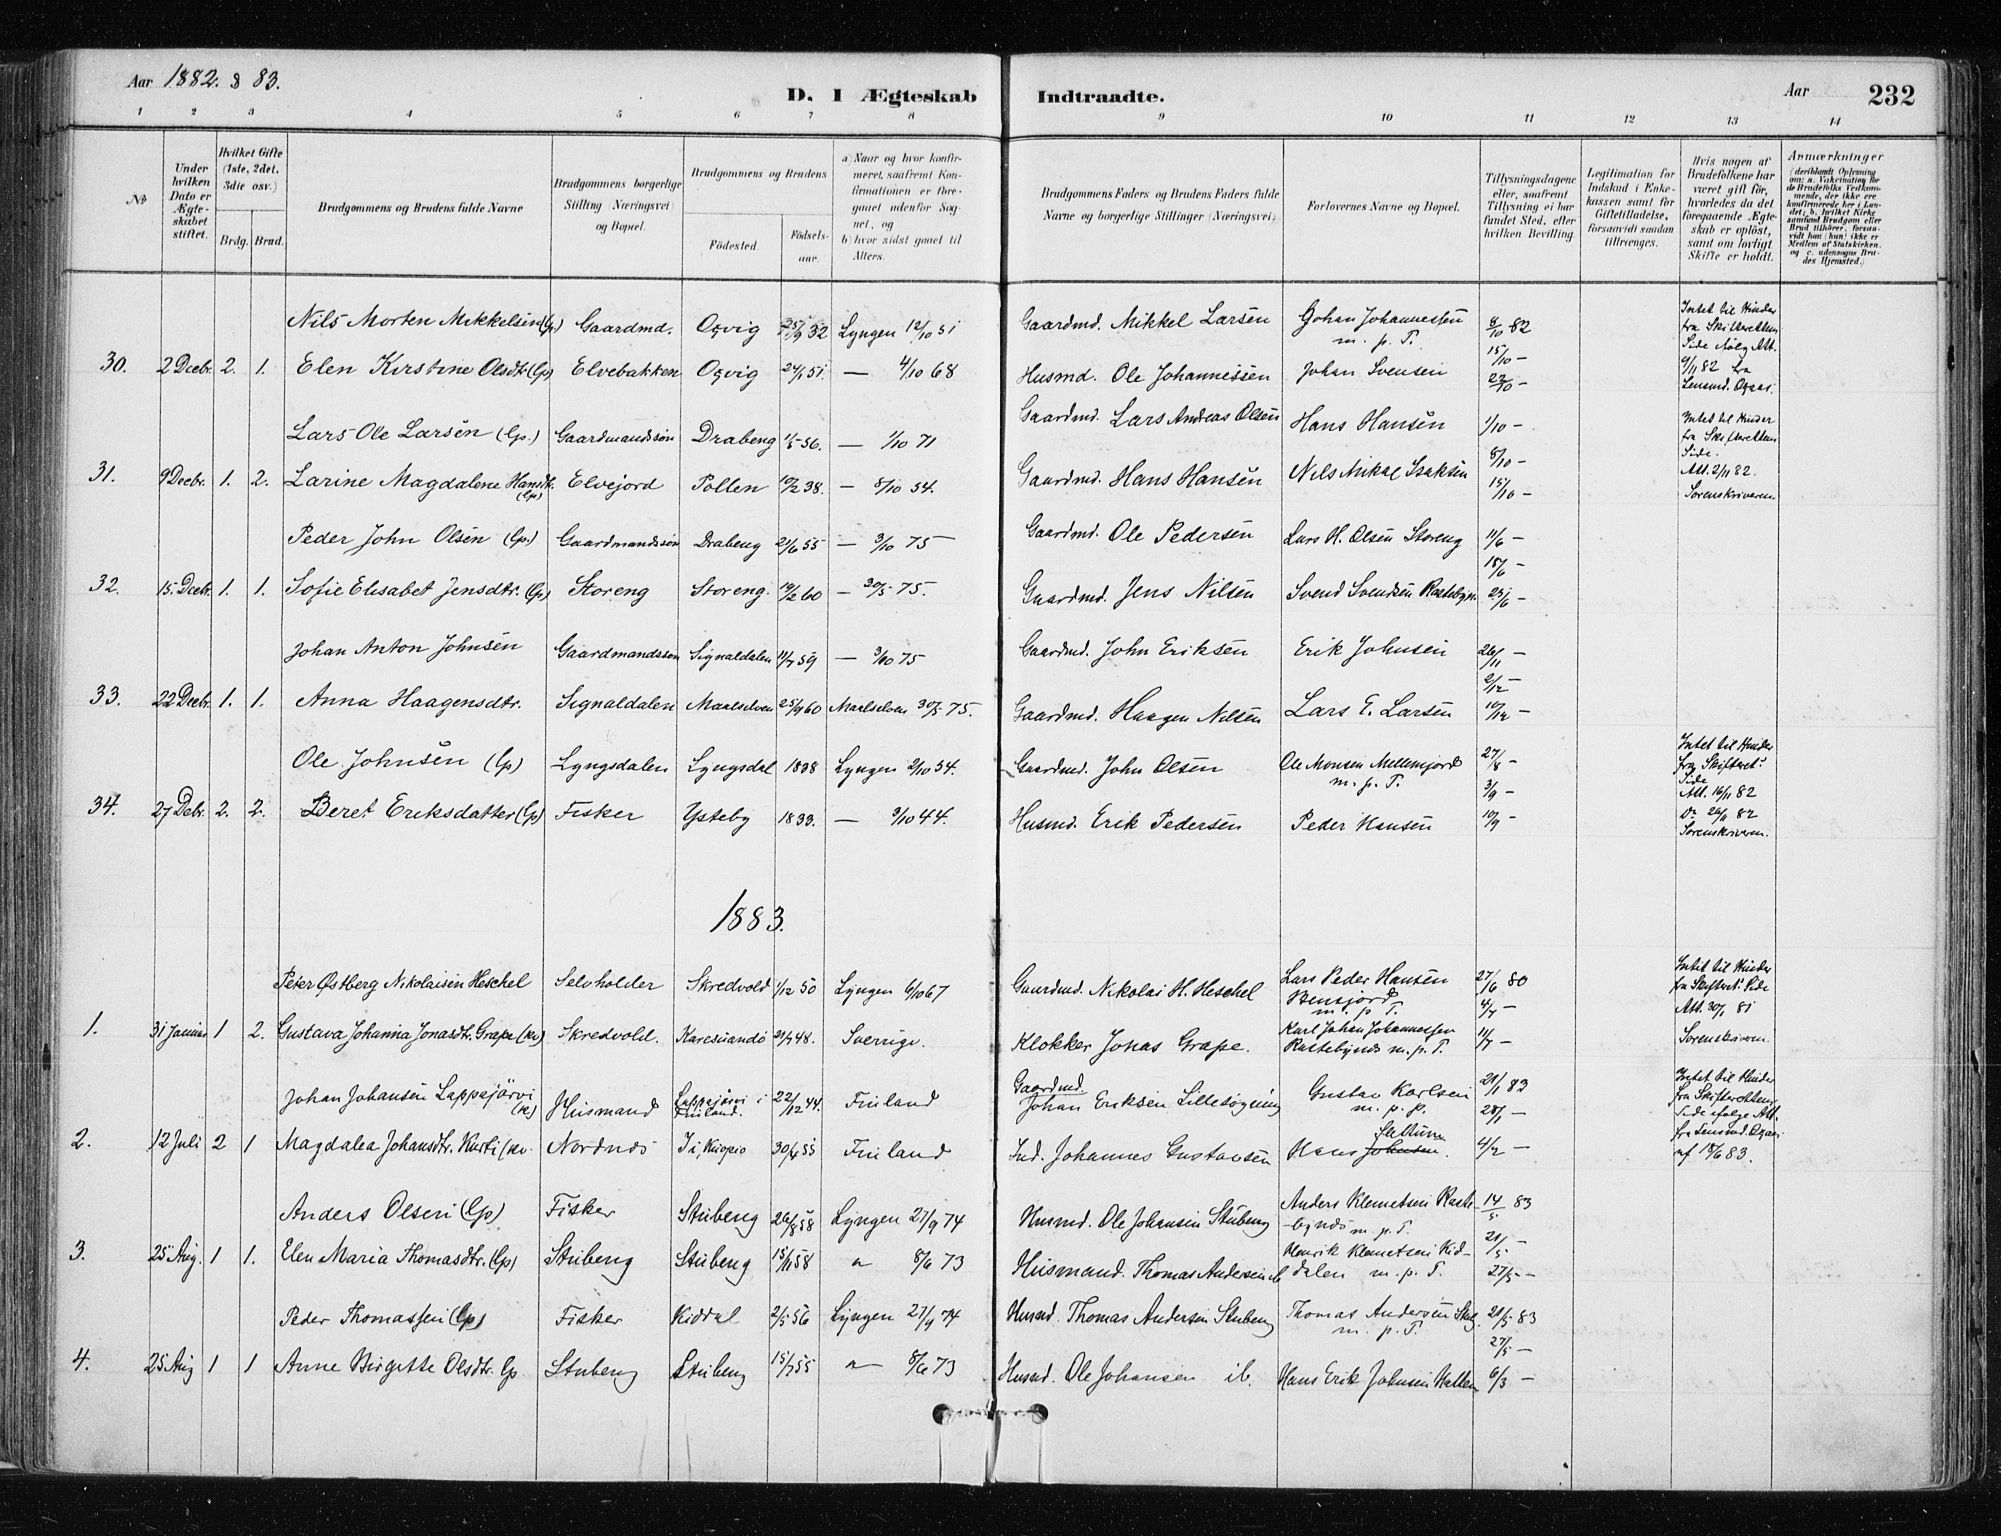 Aar 1882. & 83.
D. I Ægteskab Indtraadte.
Aar 232
1 2 3 4 5 6 7 8 9 10 11 12 13 14
No
Under hvilken Dato er Ægteskabet stiftet.
Hvilket Gifte (1ste, 2det, 3die osv.)
Brdg. Brud.
Brudgommens og Brudens fulde Navne
Brudgommens borgerlige Stilling (Næringsvei) og Bopæl.
Brudgommens og Brudens
Fødested. Fødsels-aar.
a) Naar og hvor konfirmeret, saafremt Konfirmationen er foregaaet udenfor Sognet, og
b) hvor sidst gaaet til Alters.
Brudgommens Faders og Brudens Faders fulde Navne og borgerlige Stillinger (Næringsvei)
Forlovernes Navne og Bopæl.
Tillysningsdagene eller, saafremt Tillysning ei har fundet Sted, efter hvilken Bevilling.
Legitimation for Indskud i Enkekassen samt for Giftetilladelse, forsaavidt saadan tiltrænges.
Hvis nogen af Brudefolkene har været gift før, hvorledes da det foregaaende Ægteskab er opløst, samt om lovligt Skifte er holdt.
Anmærkninger (deriblandt Oplysning om: a. Vakcination for de Brudefolks Vedkommende, der ikke ere konfirmerede her i Landet; b. hvilket Kirkesamfund Brudgom eller Brud tilhører, forsaavidt han (hun) ikke er Medlem af Statskirken, og c. udensogns Brudes Hjemsted.)
Nils Morten Mikkelsen (Lp.) Gaardmd. Oxvig 25/9 32 Lyngen 12/10 51 Gaardmd. Mikkel Larsen Johan Johannessen m. p. P. 8/10 82 Intet til Hinder fra Skifterettens Side
30. 2 Decbr. 2. 1. Elen Kirstine Olsdtr. (Lp) Elvebakken Oxvig 24/1 51. — 4/10 68 Husmd. Ole Johannessen Johan Svensen 15/10 — 22/10 — 9/11 82 fra Lensmd.
Lars Ole Larsen (Lp.) Gaardmandssøn Drabeng 1/5 56. — 1/10 71 Gaardmd. Lars Andreas Olsen Hans Hansen 1/10 — Intet til Hinder fra Skifterettens Side.
31. 9 Decbr. 1. 2. Larine Magdalene Hansdtr. (Lp) Elvejord Pollen 10/2 38. — 8/10 54. Gaardmd. Hans Hansen Nils Mikal Isaksen 8/10 — 15/10 — Att. 2/11 82. Sorenskriveren
Peder John Olsen (Lp.) Gaardmandssøn Drabeng 21/6 55 — 3/10 75 — Gaardmd. Ole Pedersen Lars H. Olsen Storeng 11/6 —
32. 15. Decbr. 1. 1. Sofie Elisabet Jensdtr. (Lp) Storeng Storeng. 19/2 60 — 30/5 75. Gaardmd. Jens Nilsen Svend Svendsen Rastebyn. 18/6 — 25/6 —
Johan Anton Johnsen Gaardmandssøn Signaldalen 11/7 59 — 3/10 75 Gaardmd. John Eriksen Erik Johnsen 26/11 —
33. 22 Decbr. 1. 1. Anna Haagensdtr. Signaldalen Maalselven 25/9 60 Maalselven 30/5 75. Gaardmd. Haagen Nilsen Lars E. Larsen 2/12 — 10/12 —
Ole Johnsen (Lp) Lyngsdalen Lyngsdal 1838 Lyngen 2/10 54. Gaardmd. John Olsen Ole Monsen Mellemjord m. p. P. 27/8 — Intet til Hinder fra Skifteret: Side
34. 27 Debr. 2. 2. Beret Eriksdatter (Lp) Fisker Ysteby 1833. — 3/10 44. Husmd. Erik Pedersen Peder Hansen 3/9 — 10/9 — Att. 16/11 82 Do 26/11 82 Sorenskriveren.
1883.
Peter Østberg Nikolaisen Heschel Selvholder Skredvold 1/12 50 Lyngen 6/10 67 Gaardmd. Nikolai H. Heschel Lars Peder Hansen Bensjord m. p. P. 27/6 80 4/7 — Intet til Hinder fra Skifteret: Side
1. 31 Januar 1 2. Gustava Johanna Jonasdtr. Grape (kv) Skredvold. Karesuando 21/7 48. Sverrige. Klokker Jonas Grape. Karl Johan Johannessen Rastebynds m. p. P. 11/7 — Att. 30/1 81 Sorenskriveren.
Johan Johansen Lappajärvi (kv) Husmand Lappajärvi i Finland. 22/12 44. Finland Gaardmd. Johan Eriksen Lilletøgning Gustav Karlsen m. p. P. 21/1 83 28/1 — Intet til Hinder fra Skifterettens Side ifølge Att.
2. 12 Juli 2 1 Magdalea Johansdtr. Kurti (kv. Nordnes Ii, Kuopio 30/4 55 Finland Ind. Johannes Gustavsen Hans Johnsen. 4/2 — fra Lensmd. af 18/6 83.
Anders Olsen (Lp) Fisker Stubeng 26/8 58 Lyngen 27/9 74 Husmd. Ole Johansen Stubeng Anders Klemetsen Rastebynds m. p. P. 14/5 83
3. 25 Aug. 1 1. Elen Maria Thomasdtr. (Lp) Stubeng Stubeng 15/11 58 " 8/6 73 Husmand. Thomas Andersen ib Henrik Klemetsen Kiddalen m. p. P. 21/5 — 27/5 —
Peder Thomassen (Lp) Fisker Kiddal 2/5 56 Lyngen 27/9 74 Husmd. Thomas Andersen Stubeng Thomas Andersen Stubg. m. p. P. 21/5 83 27/5 —
4. 25 Aug 1 1 Anne Birgitte Olsdtr. Lp Stubeng Stubeng 15/7 55 " 8/6 73 Husmd. Ole Johansen ib. Hans Erik Johnsen Hatten 6/3 —